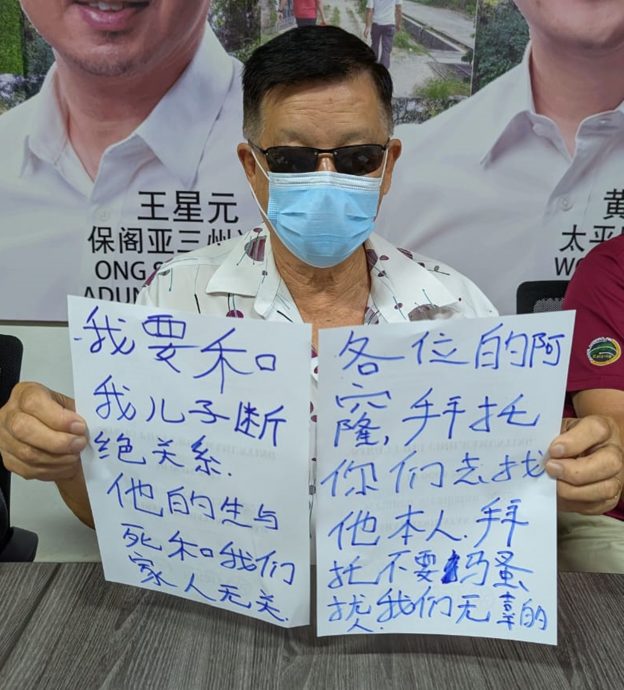 王星元
保阁亚三州
ONG S
ADUN
黄
太平
WO
我要和
我儿子断
绝关系.
他的生与
死和我们
家人无关.
各位的阿
窿,拜托
你们去找
他本人.拜
托不要骚
扰我们无辜的
人.